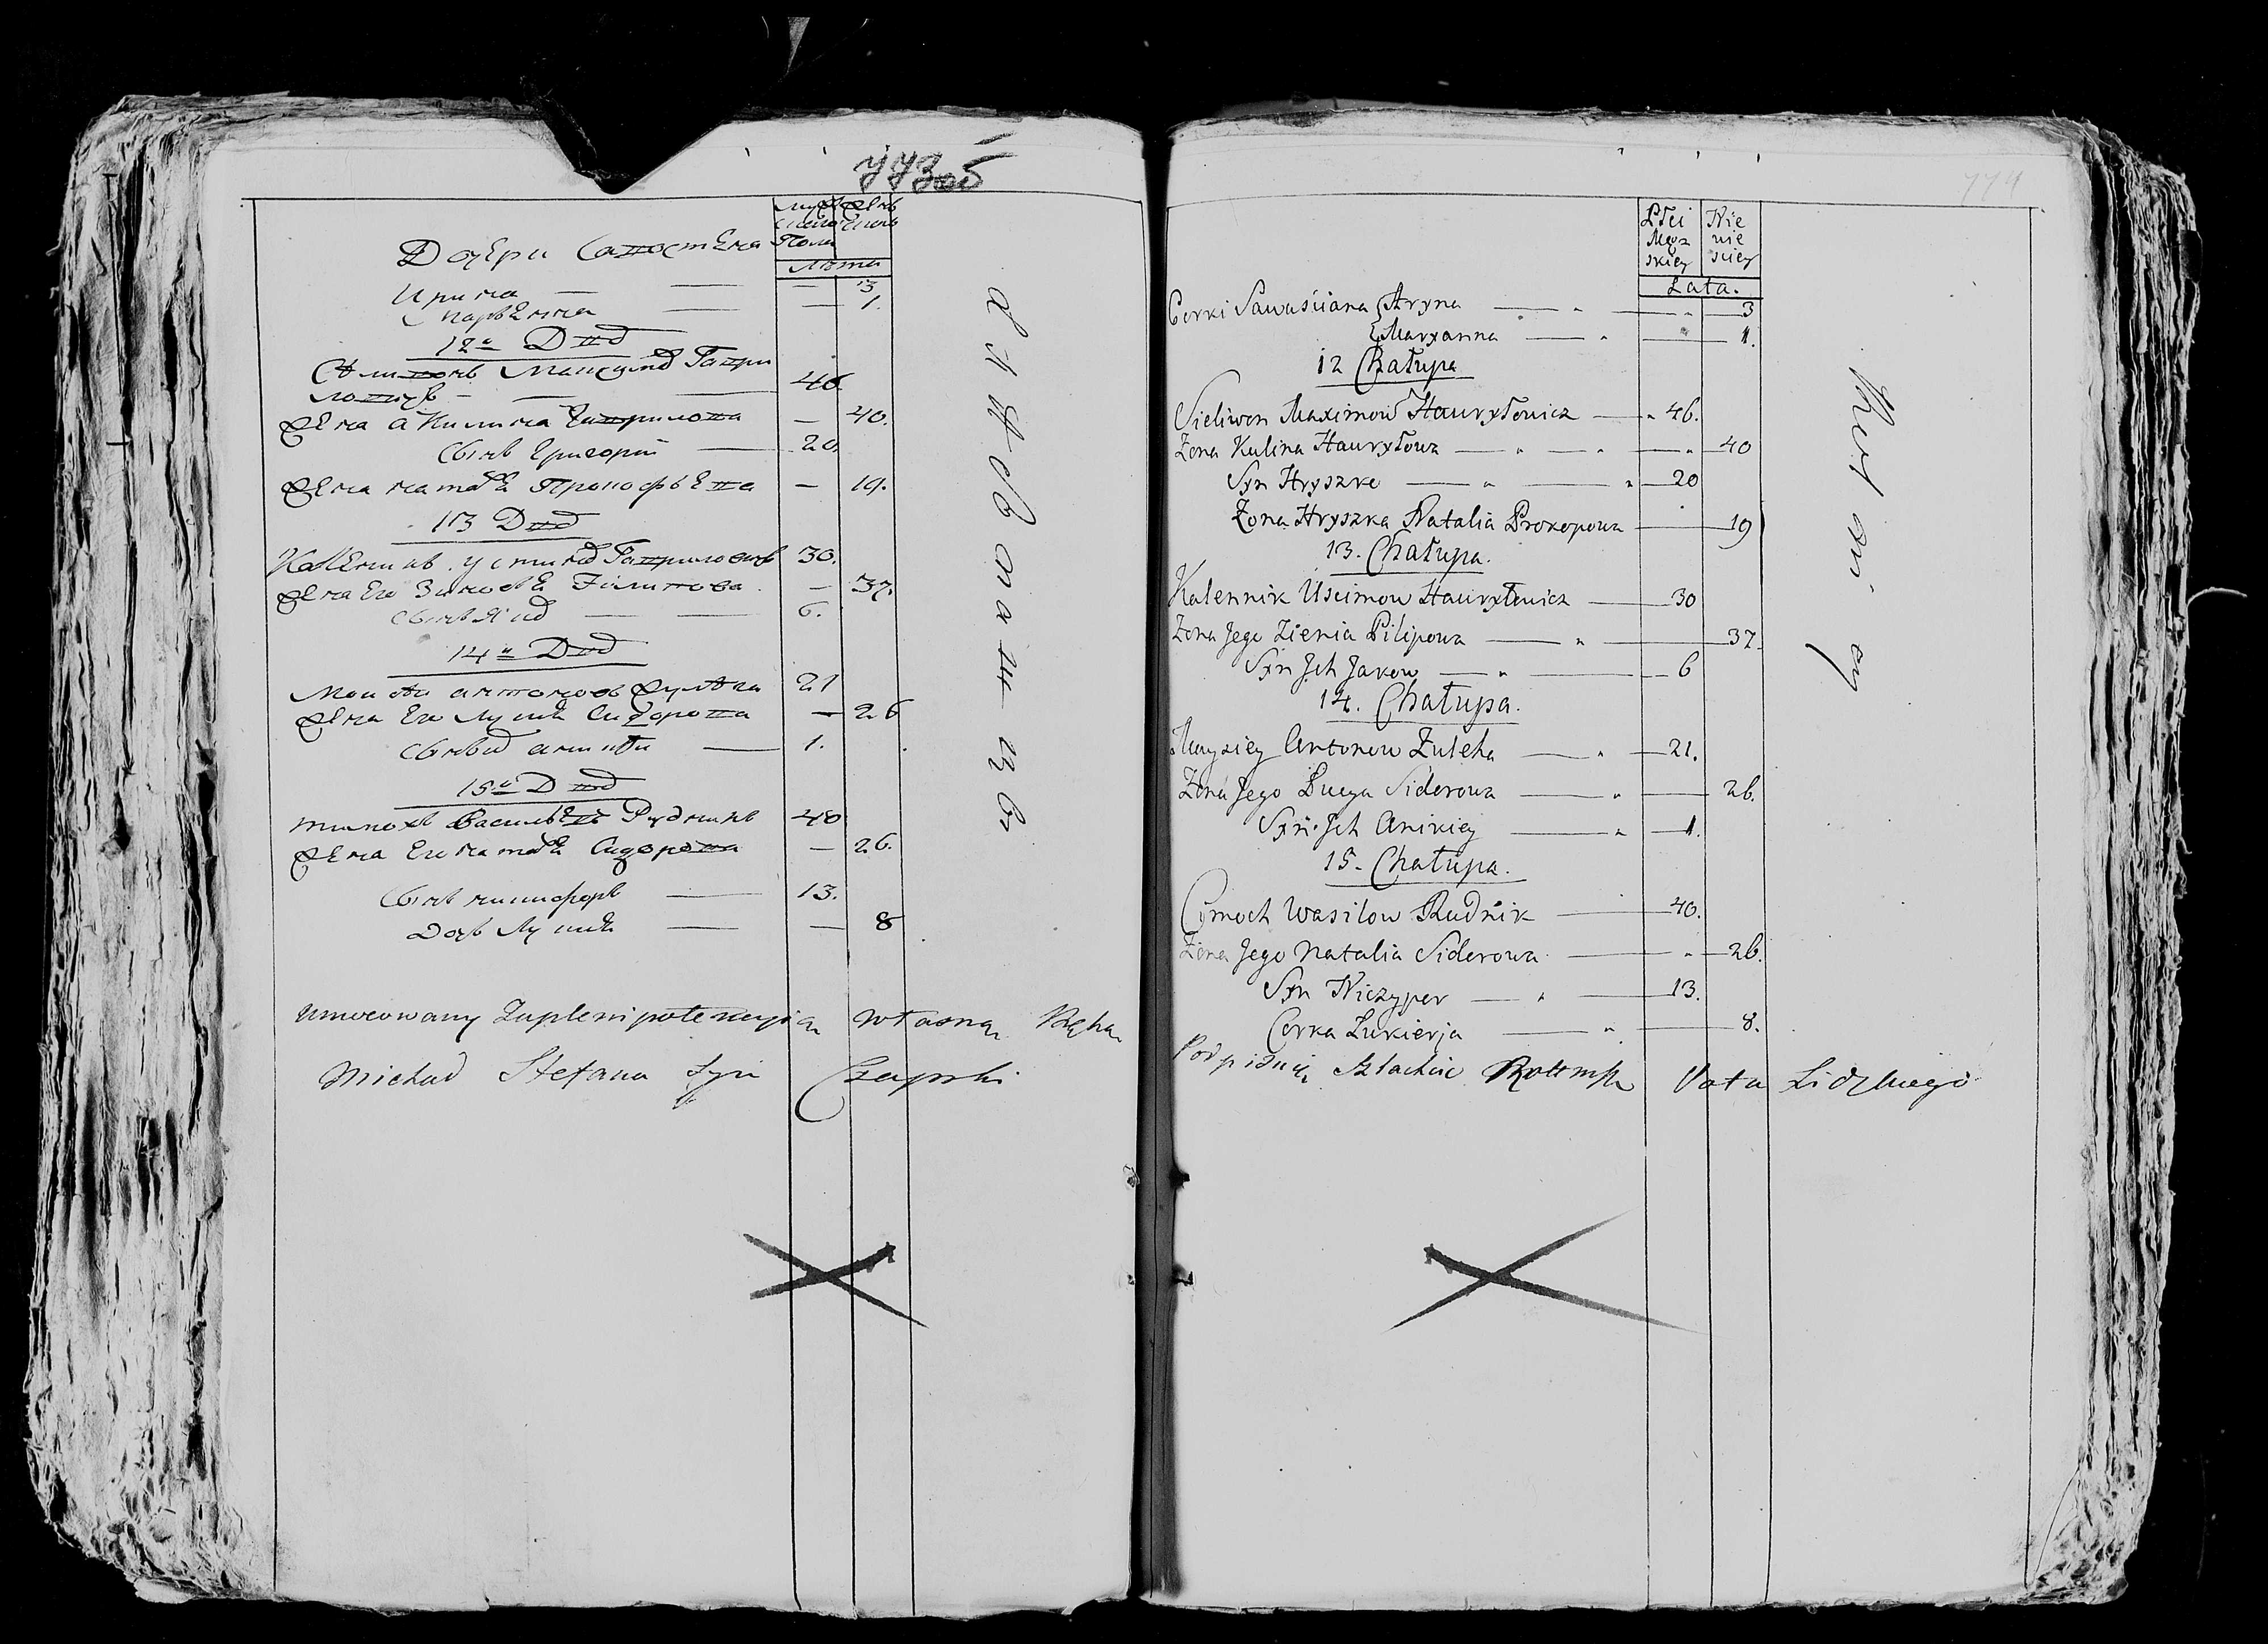 773 об
Мужеска Пола
Женска
Лѣта
Дочери Савостѣяна
Ирина — — — 3
Марьянна — — 1.
12й Двор
Сѣливонъ Максимов Гаври
ловичъ — — 46.
Жена Акилина Гаврилова — 40.
Сынъ Григорий — 20.
Жена Наталья Прокофьева — 19.
13 Двор
Каленикъ Устинов Гавриловичъ 30.
Жена Его Зиновья Филипова — 37.
Сынъ Яков — — 6.
14й Двор
Моисей Антоновъ Жулега 21
Жена Его Лукия Сидорова — 26
Сынъ Аникий — 1.
15й Двор
Тимохъ Васильевъ Рудникъ 40
Жена Его Наталья Сидорова — 26.
Сынъ Никифоръ — 13.
Дочь Лукия — — 8
Umocowany Zaplenipotencyią własną Ręką
Michał Stefana Syn Czapski
774
Płci Męzskiey
Nie wie sciey
Lata.
Corki Sawaściana Aryna — 3
Maryanna — 1.
12 Chałupa
Sieliwon Maximow Hauryłowicz — 46.
Żona Kulina Hauryłowa — 40
Syn Hryszko — 20
Żona Hryszka Natalia Prokopowa — 19
13. Chałupa.
Kalennik Uscimow Hauryłowicz — 30
Żona Jego Zienia Pilipowa — 37.
Syn Jch Jakow — 6
14. Chałupa.
Maysiey Antonow Żuleha — 21.
Żona Jego Łucya Siderowa — 26.
Syn Jch Anikiey — 1.
15. Chałupa.
Cimoch Wasilow Rudnik — 40.
Żona Jego Natalia Siderowa — 26.
Syn Niczyper — 13.
Corka Łukierja — 8.